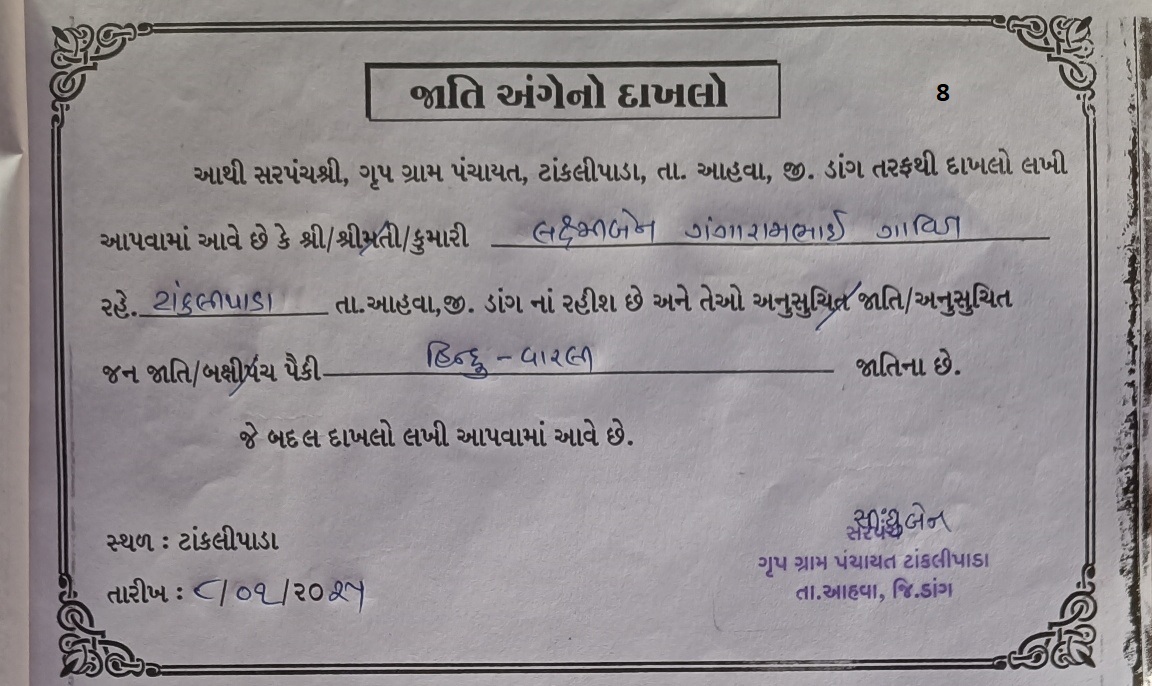 જાતિ અંગેનો દાખલો
8
આથી સરપંચશ્રી, ગૃપ ગ્રામ પંચાયત, ટાંકલીપાડા, તા. આહવા, જી. ડાંગ તરફથી દાખલો લખી
આપવામાં આવે છે કે શ્રી/શ્રીમતી/કુમારી લક્ષ્મીબેન ગંગારામભાઈ ગાવિત
રહે. ટાંકલીપાડા તા.આહવા,જી. ડાંગ નાં રહીશ છે અને તેઓ અનુસુચિત જાતિ/અનુસુચિત
જન જાતિ/બક્ષીપંચ પૈકી હિન્દુ - વારલી જાતિના છે.
જે બદલ દાખલો લખી આપવામાં આવે છે.
સ્થળ : ટાંકલીપાડા
તારીખ : ૮/૦૧/૨૦૨૫
સરપંચ
ગૃપ ગ્રામ પંચાયત ટાંકલીપાડા
તા.આહવા, જિ.ડાંગ